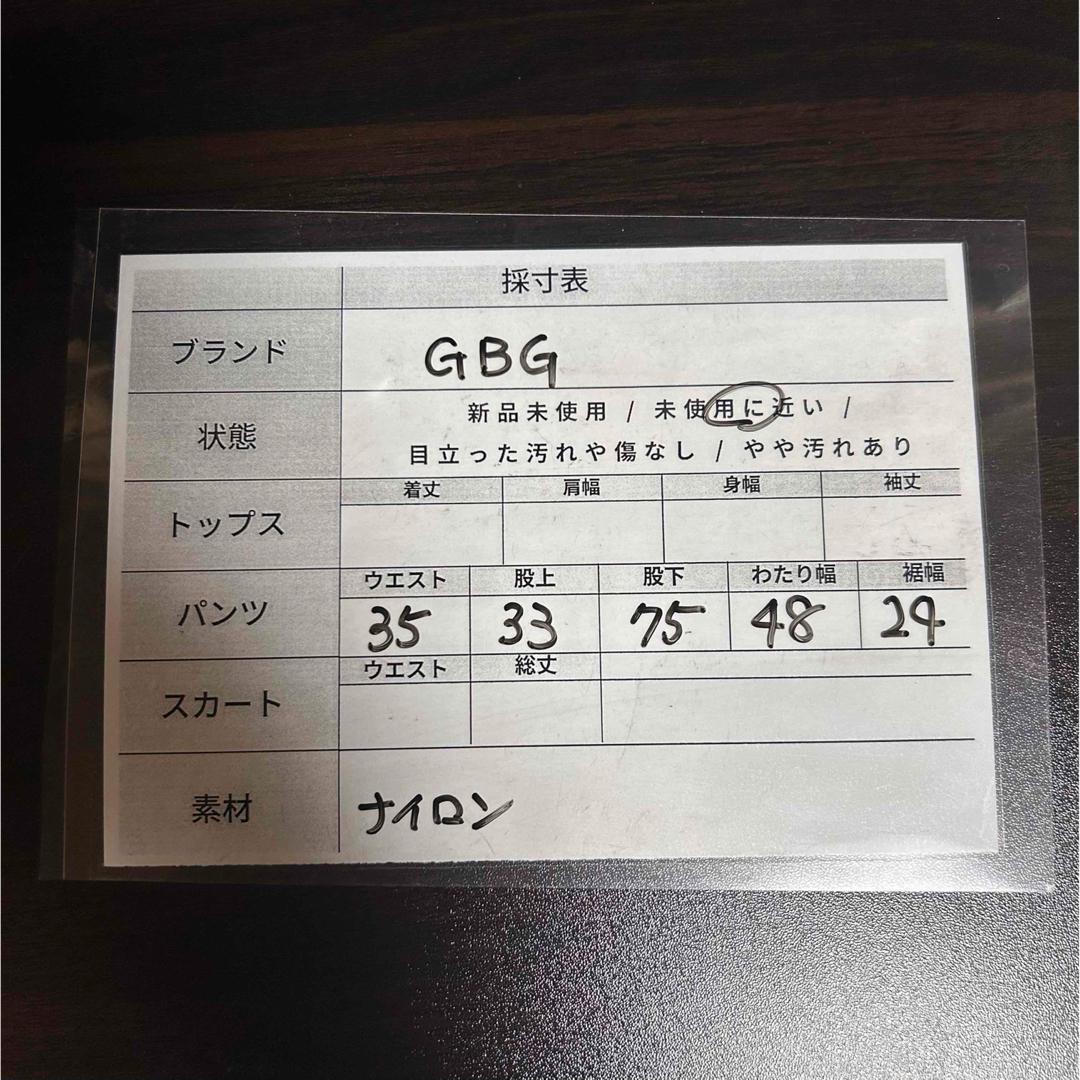 採寸表
ブランド GBG
状態 新品未使用 / 未使用に近い /
目立った汚れや傷なし / やや汚れあり
トップス 着丈 肩幅 身幅 袖丈
パンツ ウエスト 股上 股下 わたり幅 裾幅
35 33 75 48 24
スカート ウエスト 総丈
素材 ナイロン